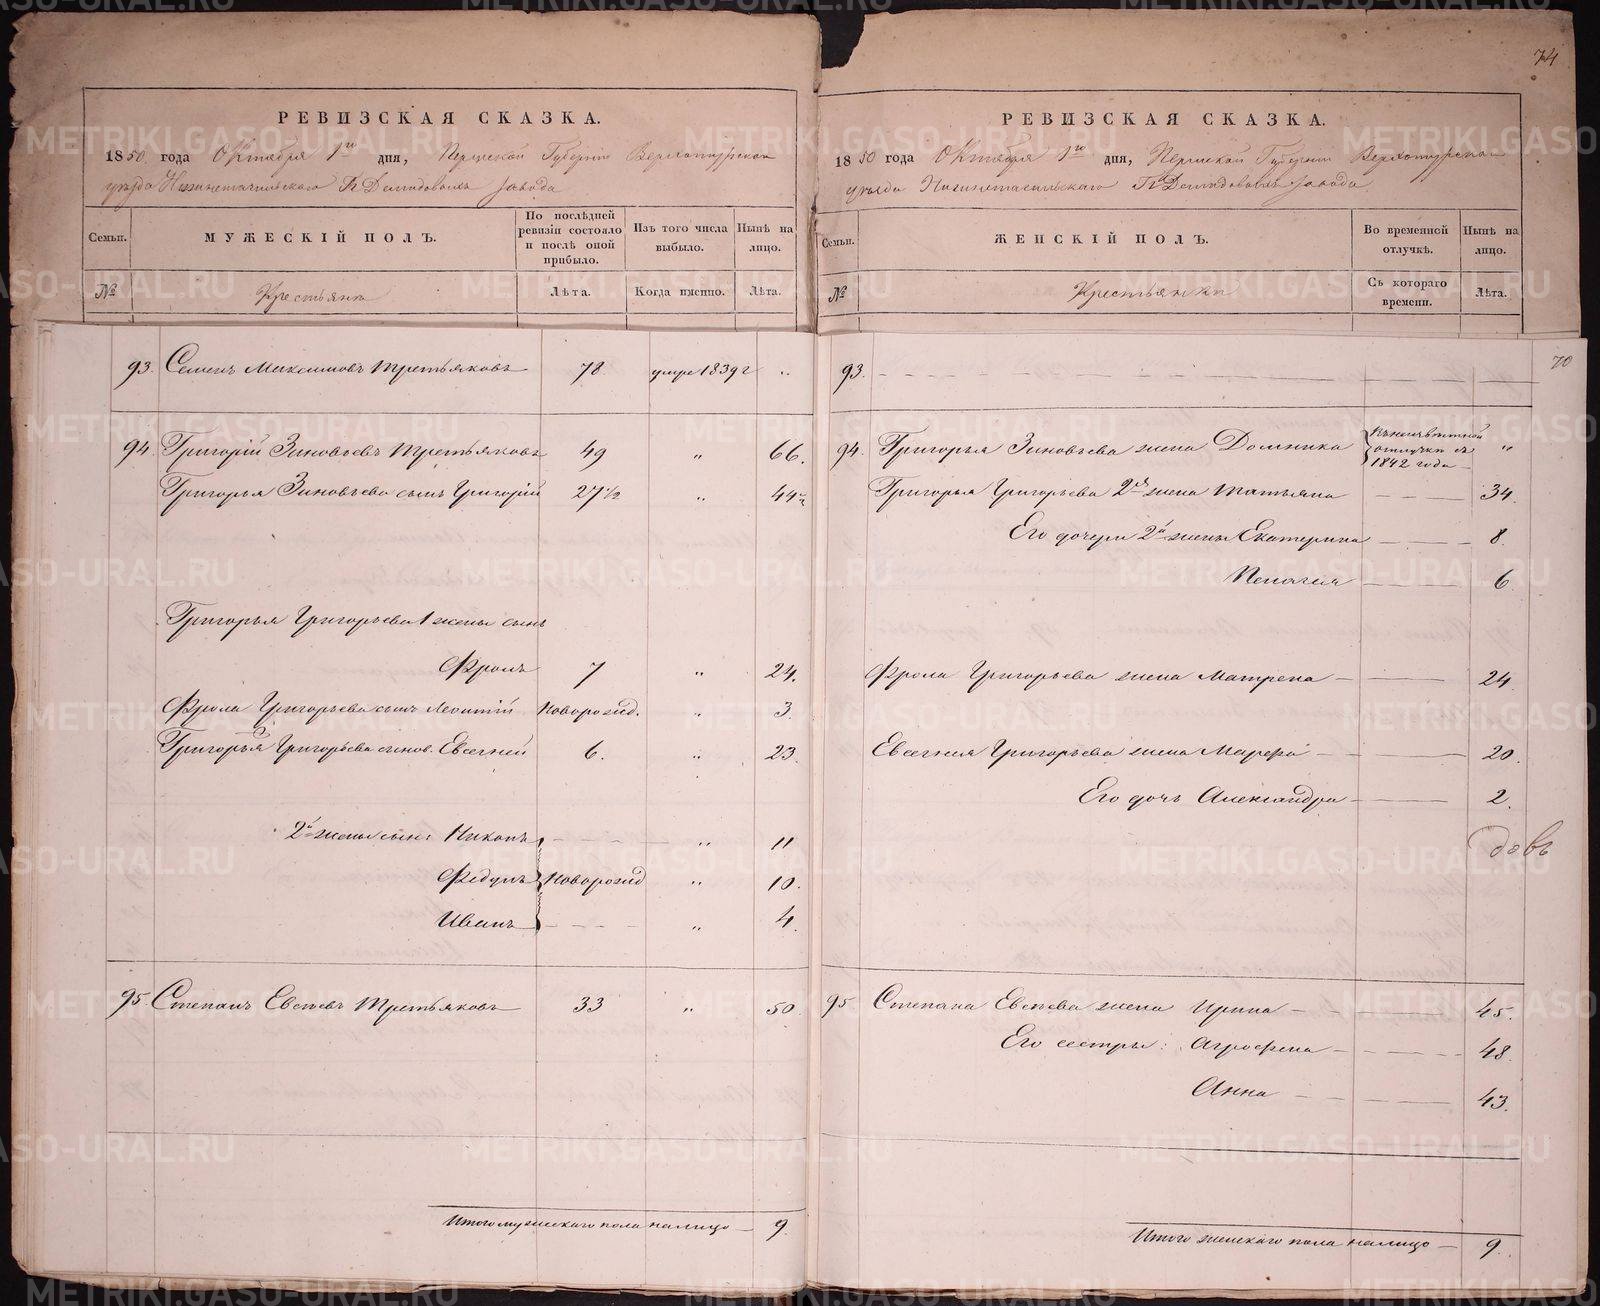 74
РЕВИЗСКАЯ СКАЗКА.
1850 года Октября 1го дня, Пермской Губернии Верхотурскаго
уезда Нижнетагильскаго Гг. Демидовыхъ завода
Семьи.
МУЖЕСКІЙ ПОЛЪ.
По последней ревизіи состояло и после оной прибыло.
Изъ того числа выбыло.
Ныне на лицо.
№
Крестьяне
Лета.
Когда именно.
Лета.
93. Семенъ Максимовъ Третьяковъ 78 умре 1839 г „
94. Григорій Зиновьевъ Третьяковъ 49 „ 66.
Григорья Зиновьева сынъ Григорій 27 1/2 „ 44 1/2
Григорья Григорьева 1 жены сынъ
Фролъ 7 „ 24.
Фрола Григорьева сынъ Леонтій Новорожд. „ 3.
Григорья Григорьева сынов. Евсегней 6. „ 23.
2й жены сын: Никонъ „ 11
Федулъ Новорожд „ 10.
Иванъ „ 4.
95. Степанъ Евсеевъ Третьяковъ 33 „ 50.
Итого мужескаго пола налицо 9.
РЕВИЗСКАЯ СКАЗКА.
1850 года Октября 1го дня, Пермской Губерніи Верхотурскаго
уезда Нижнетагильскаго Гг. Демидовыхъ завода.
Семьи.
ЖЕНСКІЙ ПОЛЪ.
Во временной отлучкѣ.
Ныне на лицо.
№
Крестьянки
Съ котораго времени.
Лѣта.
70
93.
94. Григорья Зиновьева жена Домника
въ неизвестной
отлучки съ
1842 года „
Григорья Григорьева 2я жена Татьяна 34.
Его дочери 2й жены Екатерина 8.
Пелагея 6.
Фрола Григорьева жена Матрена 24.
Евсегнея Григорьева жена Марфа 20.
Его дочь Александра 2.
95. Степана Евсеева жена Ирина 45.
Его сестры: Агрофена 48.
Анна 43.
Итого женскаго пола налицо 9.
METRIKI.GASO-URAL.RU